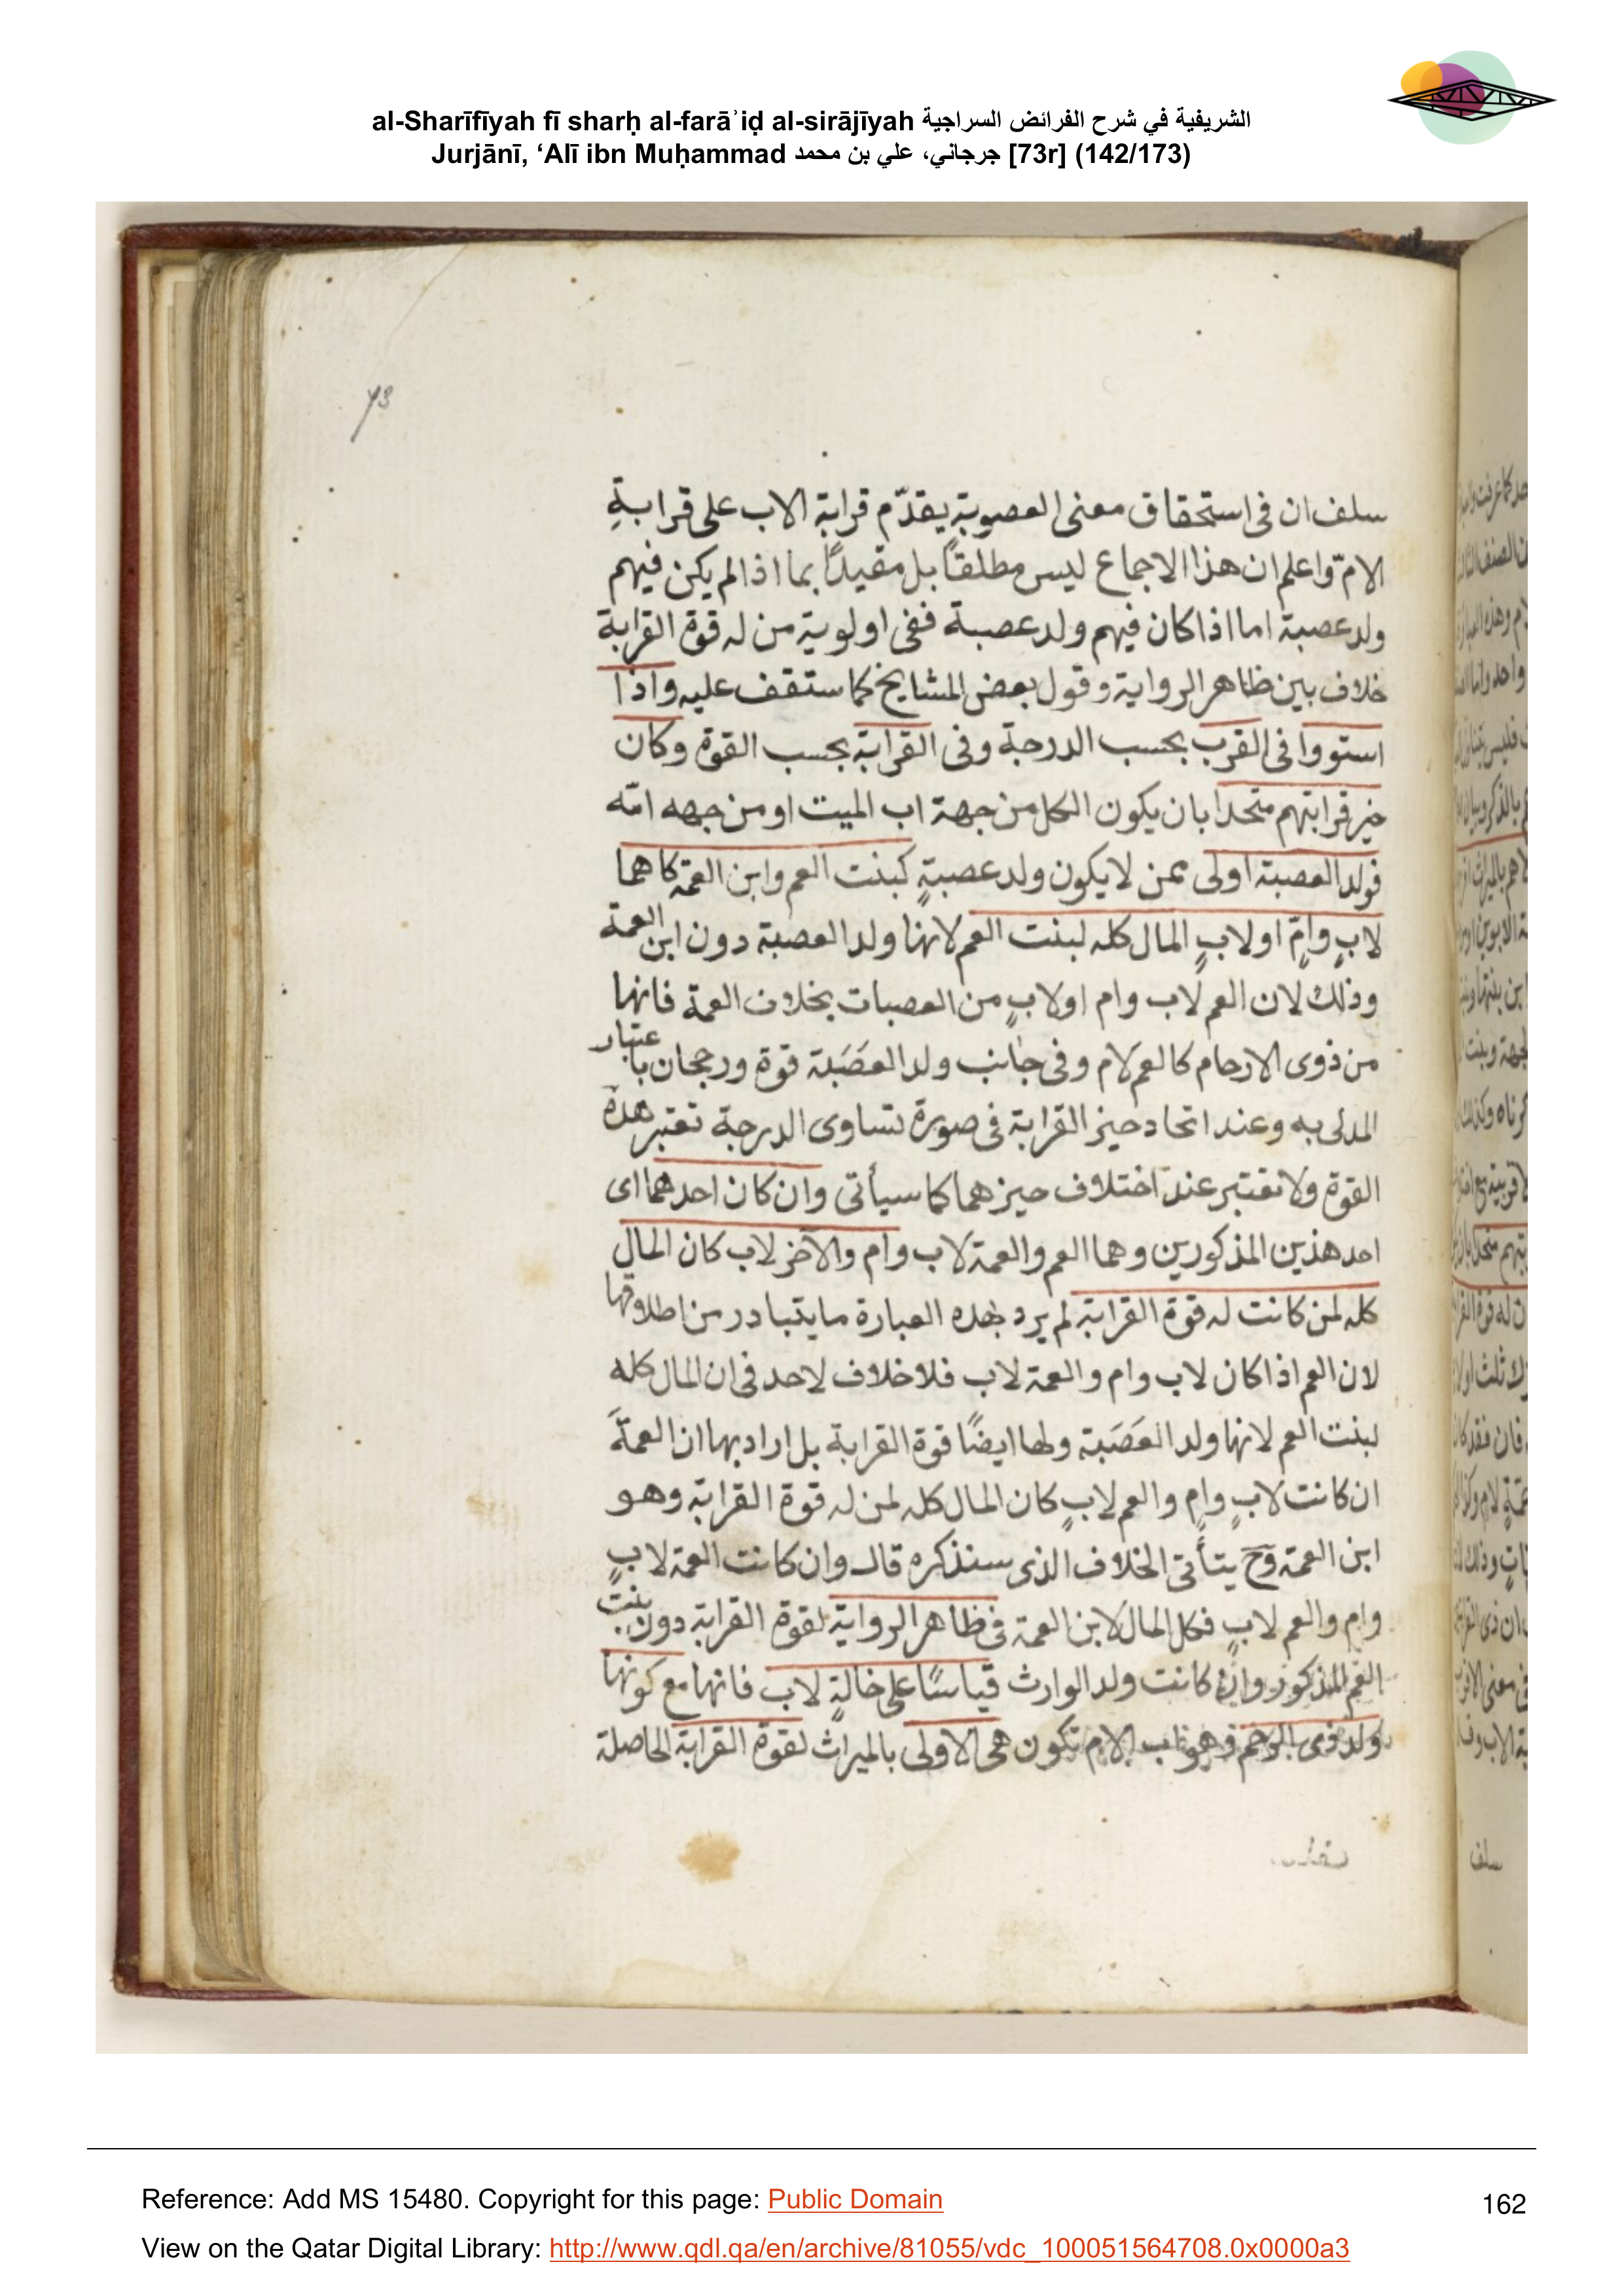 al-Sharīfīyah fī sharḥ al-farāʾiḍ al-sirājīyah الشريفية في شرح الفرائض السراجية
Jurjānī, ‘Alī ibn Muḥammad جرجاني، علي بن محمد [73r] (142/173)
73
سلف ان فى استحقاق معنى العصوبة يقدّم قرابة الاب على قرابةِ
الامّ واعلم ان هذا الاجماع ليس مطلقاً بل مقيداً بما اذا لم يكن فيهم
ولد عصبة اما اذا كان فيهم ولد عصبة ففى اولوية من له قوة القرابة
خلاف بين ظاهر الرواية وقول بعض المشايخ كما ستقف عليه واذا
استووا فى القرب بحسب الدرجة وفى القرابة بحسب القوة وكان
حيز قرابتهم متحدا بان يكون الكل من جهة اب الميت او من جهه امّه
فولد العصبة اولى ممن لا يكون ولد عصبةٍ كبنت العم وابن العمة كاهما
لابٍ وامٍّ او لابٍ المال كله لبنت العم لانها ولد العصبة دون ابن العمة
وذلك لان العم لاب وام او لابٍ من العصبات بخلاف العمة فانها
من ذوى الارحام كالعم لام وفى جانب ولد العصَبة قوة ورجحان باعتبار
المدلى به وعند اتحاد حيز القرابة فى صورة تساوى الدرجة تعتبر هذه
القوة ولا تعتبر عند اختلاف حيزهما كما سيأتى وان كان احدهما اى
احد هذين المذكورين وهما العم والعمة لاب وام والآخر لاب كان المال
كله لمن كانت له قوة القرابة لم يرد بهذه العبارة ما يتبادر من اطلاقها
لان العم اذا كان لاب وام والعمة لاب فلا خلاف لاحد فى ان المال كله
لبنت العم لانها ولد العَصَبة ولها ايضًا قوة القرابة بل اراد بها ان العمةَ
ان كانت لابٍ وامٍ والعم لابٍ كان المال كله لمن له قوة القرابة وهو
ابن العمة وَحَ يتأتى الخلاف الذى سنذكره قال وان كانت العمة لابٍ
وامٍ والعم لابٍ فكل المال لابن العمة فى ظاهر الرواية لقوة القرابة دون بنت
العم المذكور وان كانت ولد الوارث قياسًا على خالةٍ لاب فانها مع كونها
ولد ذى الرحم وهو اب الام تكون هى الاولى بالميراث لقوة القرابة الحاصلة
سلف
Reference: Add MS 15480. Copyright for this page: Public Domain
162
View on the Qatar Digital Library: http://www.qdl.qa/en/archive/81055/vdc_100051564708.0x0000a3